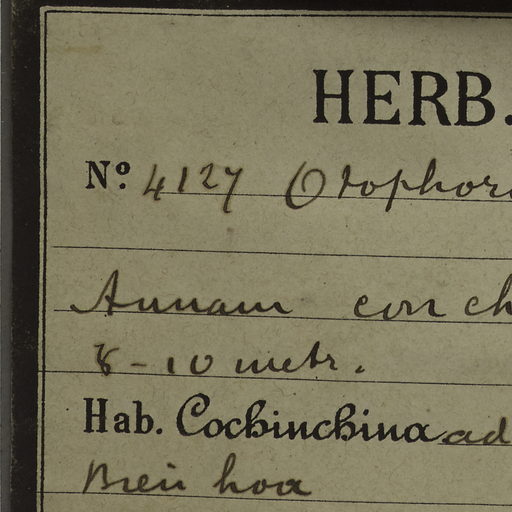 HERB.
Nº. 4127 Otophora
Annam con ch
8-10 metr.
Hab. Cochinchina ad
Bien hoa